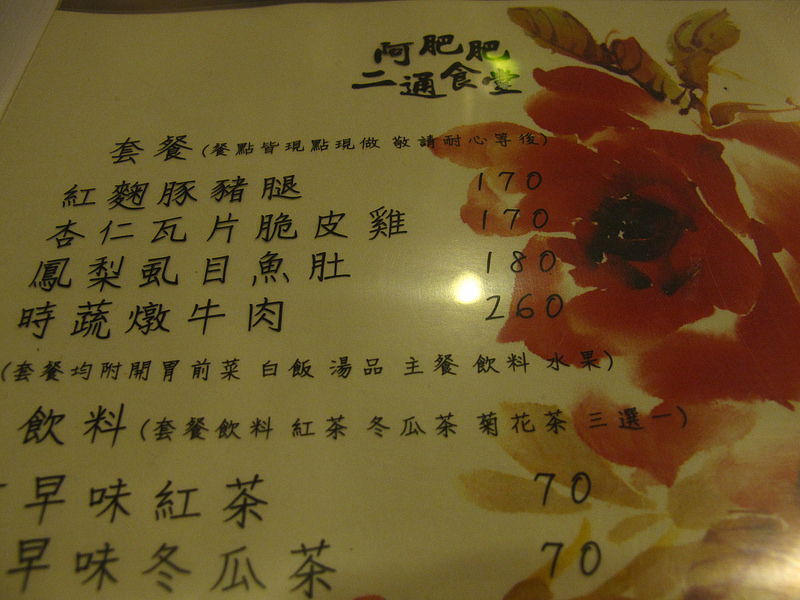 阿肥肥
二通食堂
套餐(餐點皆現點現做 敬請耐心等後)
紅麴豚豬腿 170
杏仁瓦片脆皮雞 170
鳳梨虱目魚肚 180
時蔬燉牛肉 260
(套餐均附開胃前菜 白飯 湯品 主餐 飲料 水果)
飲料(套餐飲料 紅茶 冬瓜茶 菊花茶 三選一)
早味紅茶 70
早味冬瓜茶 70